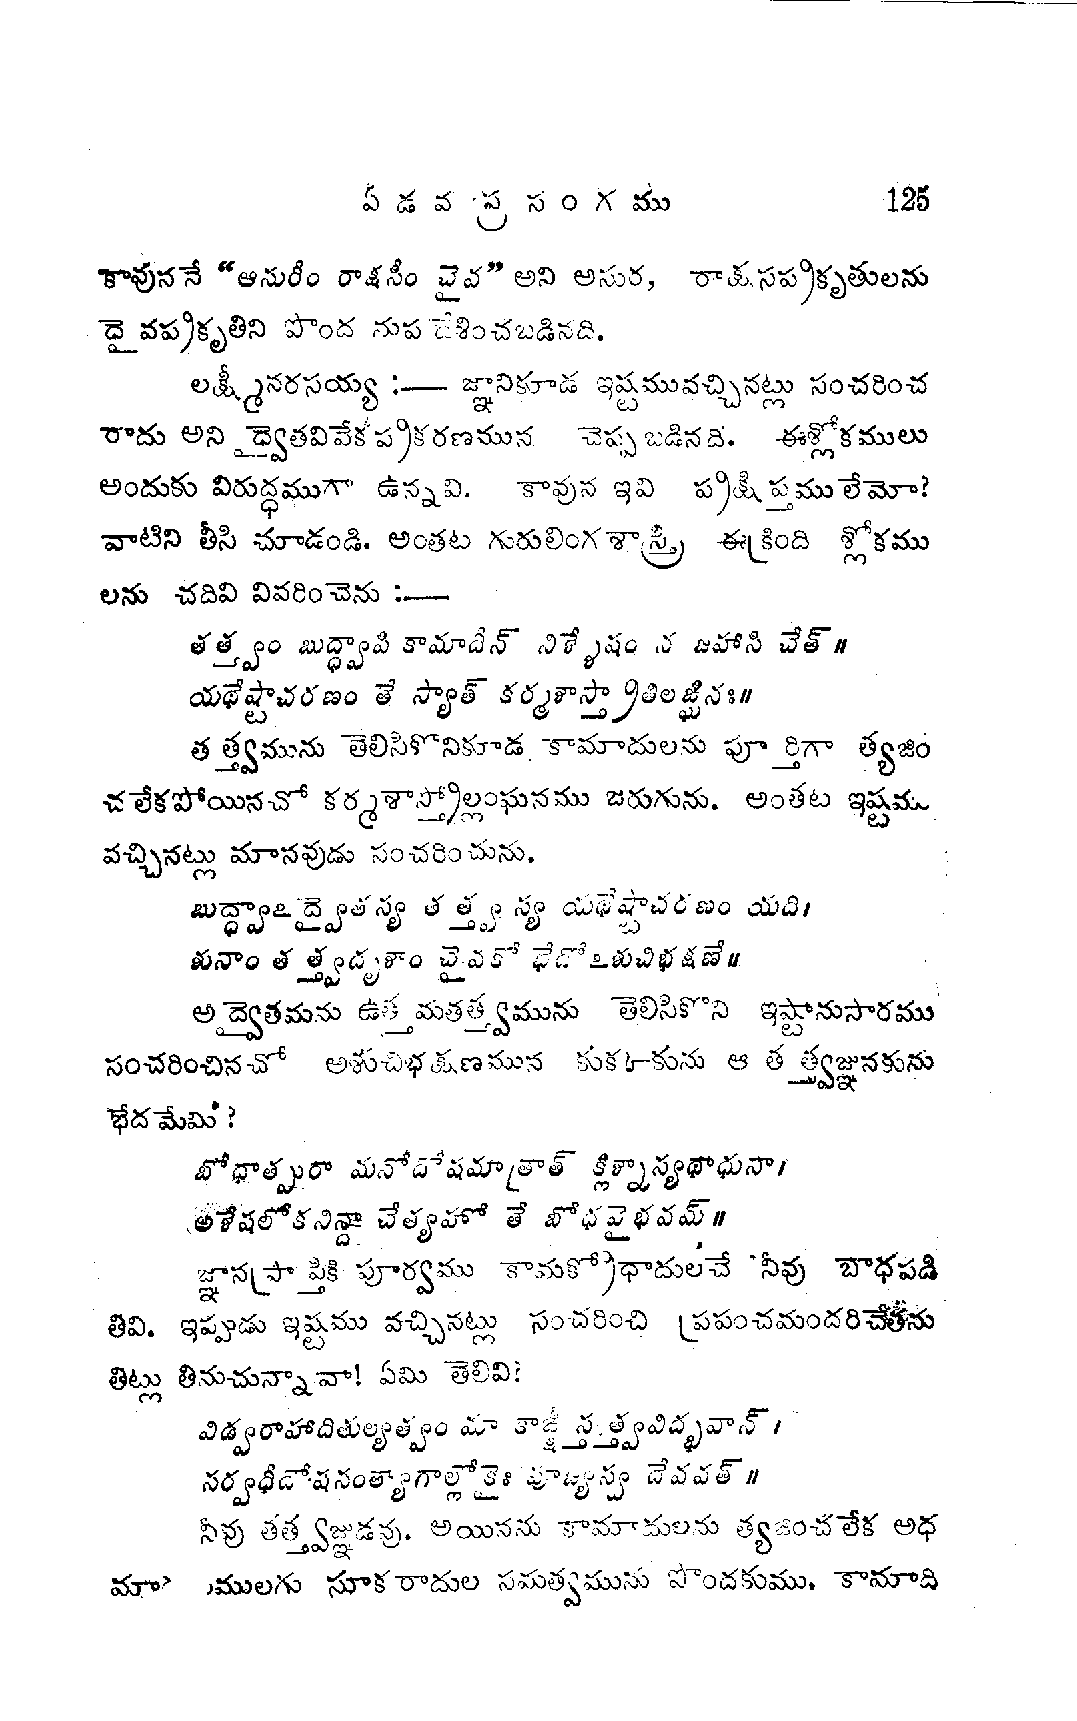 ఏడవ ప్రసంగము 125
కావుననే “ఆసురీం రాక్షసీం చైవ” అని అసుర, రాక్షసప్రకృతులను
దైవప్రకృతిని పొంద నుపదేశించబడినది.
లక్ష్మీనరసయ్య :— జ్ఞానికూడ ఇష్టమువచ్చినట్లు సంచరించ
రాదు అని ద్వైతవివేకప్రకరణమున చెప్పబడినది. ఈశ్లోకములు
అందుకు విరుద్ధముగా ఉన్నవి. కావున ఇవి ప్రక్షిప్తము లేమో?
వాటిని తీసి చూడండి. అంతట గురులింగశాస్త్రి ఈక్రింది శ్లోకము
లను చదివి వివరించెను :—
తత్త్వం బుద్ధ్వాపి కామాదీన్ నిశ్శేషం న జహాసి చేత్॥
యథేష్టాచరణం తే స్యాత్ కర్మశాస్త్రాతిలఙ్ఘినః॥
తత్త్వమును తెలిసికొనికూడ కామాదులను పూర్తిగా త్యజిం
చలేకపోయినచో కర్మశాస్త్రోల్లంఘనము జరుగును. అంతట ఇష్టము
వచ్చినట్లు మానవుడు సంచరించును.
బుద్ధ్వాఽద్వైతస్య తత్త్వస్య యథేష్టాచరణం యది।
శునాం తత్త్వదృశాం చైవకో భేదోఽశుచిభక్షణే॥
అద్వైతమను ఉత్తమతత్త్వమును తెలిసికొని ఇష్టానుసారము
సంచరించినచో అశుచిభక్షణమున కుక్కకును ఆ తత్త్వజ్ఞునకును
భేదమేమి?
బోధాత్పురా మనోదోషమాత్రాత్ క్లిశ్నాస్యథాధునా।
అశేషలోకనిన్దా చేత్యహో తే బోధవైభవమ్॥
జ్ఞానప్రాప్తికి పూర్వము కామక్రోధాదులచే నీవు బాధపడి
తివి. ఇప్పుడు ఇష్టము వచ్చినట్లు సంచరించి ప్రపంచమందరిచేతను
తిట్లు తినుచున్నావా! ఏమి తెలివి!
విడ్వరాహాదితుల్యత్వం మా కాఙ్క్షీస్తత్త్వవిద్భవాన్।
సర్వధీదోషసంత్యాగాల్లోకైః పూజ్యస్వ దేవవత్॥
నీవు తత్త్వజ్ఞుడవు. అయినను కామాదులను త్యజించలేక అధ
ములగు సూకరాదుల సమత్వమును పొందకుము. కామాది